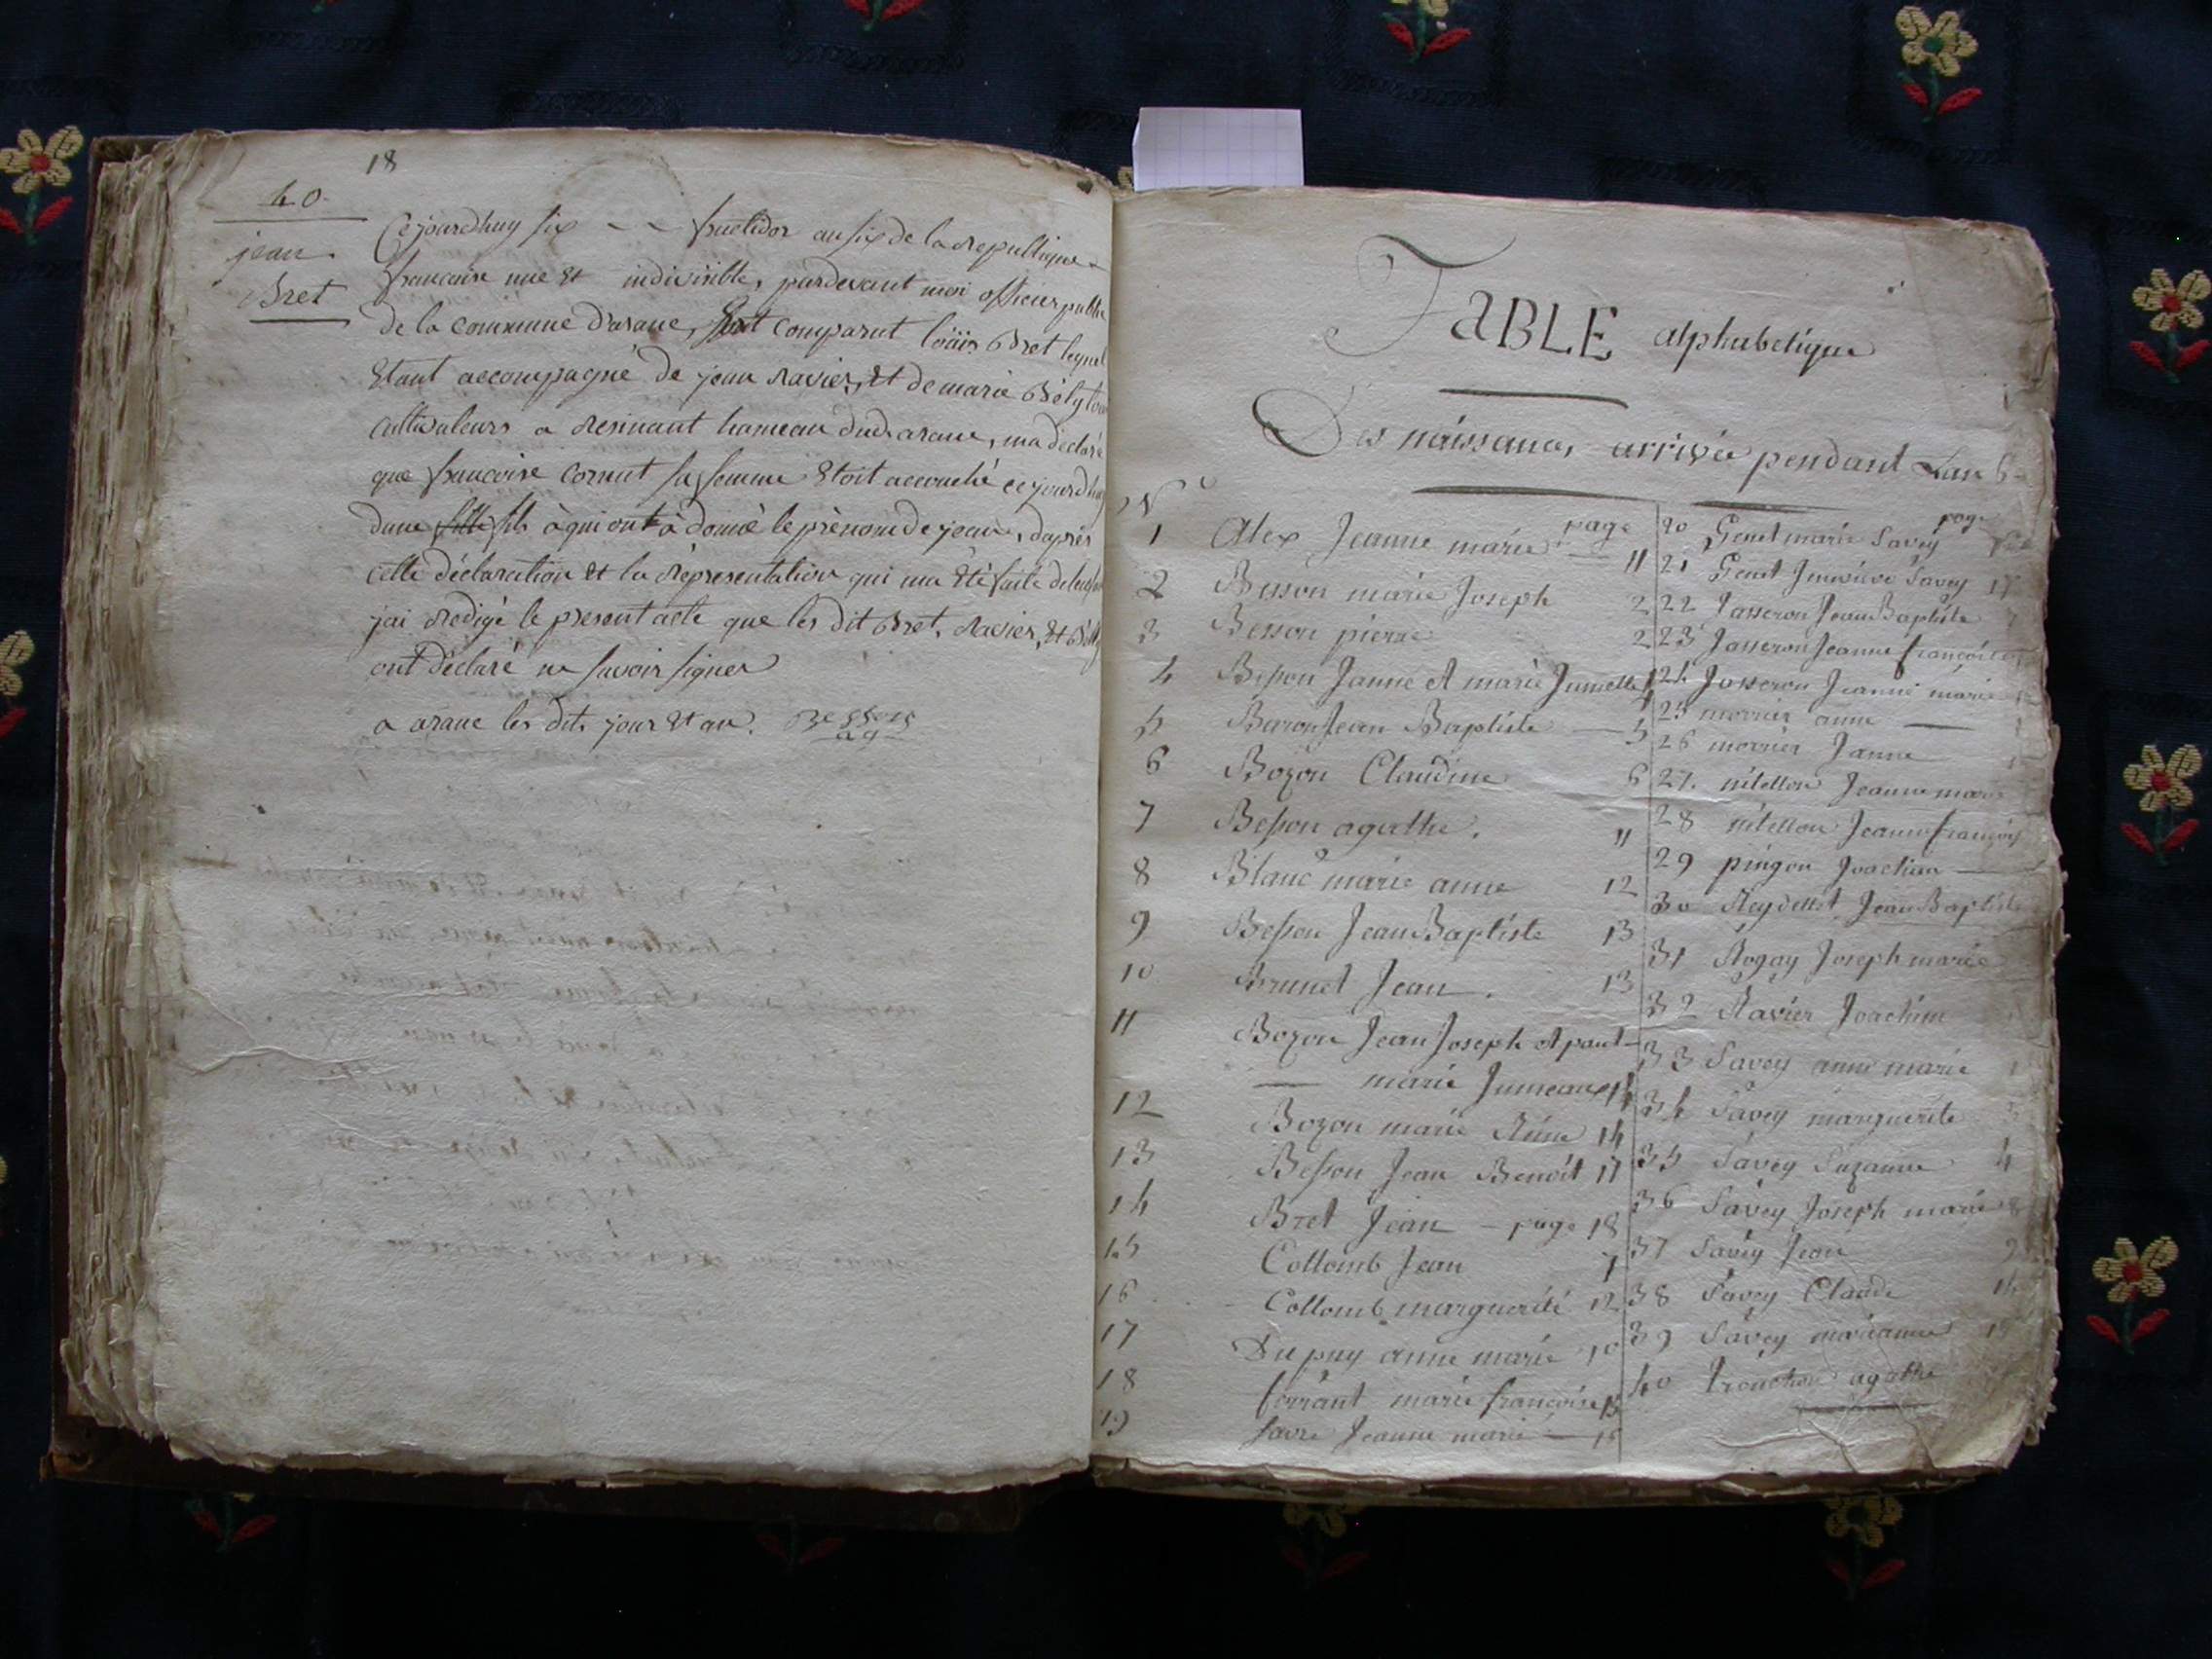 18
40.
jean
Bret
Cejourdhuy six -- fructidor an six de la republique
francaise une et indivisible, pardevant moi officier public
de la commune d'arane, comparut loüis Bret lequel
Etant accompagné de jean Ravier, et de marie Bély tous
cultivateurs a Resinant hameau dud. arane, ma déclaré
que francoise cornut sa femme Etoit accouché cejourdhuy
dune fille fils à qui ont à donné le prénom de jean, daprés
cette déclaration et la répresentation qui ma été faite
jai redigé le present acte que les dit Bret, Ravier, et Bély
ont déclaré ne savoir signer
a arane les dits jour et an. Besson
ag
TABLE alphabetique
Des naissances arrivée pendant Lan 6
No
page
1 Alex Jeanne marie — 11
2 Besson marie Joseph 2
3 Besson pierre 2
4 Besson Janne et marie Jumelle
5 Baron Jean Baptiste — 5
6 Bozon Claudine 6
7 Besson agathe. 11
8 Blanc marie anne 12
9 Besson Jean Baptiste 13
10 Brunet Jean. 13
11 Bozon Jean Joseph et paul
— marie Jumeaux 14
12 Bozon marie Réine 14
13 Besson Jean Benoit 17
14 Bret Jean — page 18
15 Collomb Jean 7
16 Collomb marguerite 12
17 Dupuy anne marie 10
18 ferrant marie francoise 15
19 favre Jeanne marie — 15
page
20 Genet marie Savey
21 Genet Jenviève Savey 17
22 Jasseron Jean Baptiste
23 Jasseron Jeanne françoise
24 Jasseron Jeanne marie
25 morrier anne —
26 morrier Janne
27. nitellon Jeanne marie
28 nitellon Jeanne françoise
29 pingon Joachim —
30 Reydellet Jean Baptiste
31 Rogay Joseph marie
32 Ravier Joachim
33 Savey anne marie
34 Savey marguerite
35 Savey Suzanne 4
36 Savey Joseph marie 8
37 Savey Jean 9
38 Savey Claude 14
39 Savey marianne 15
40 tronchon agathe